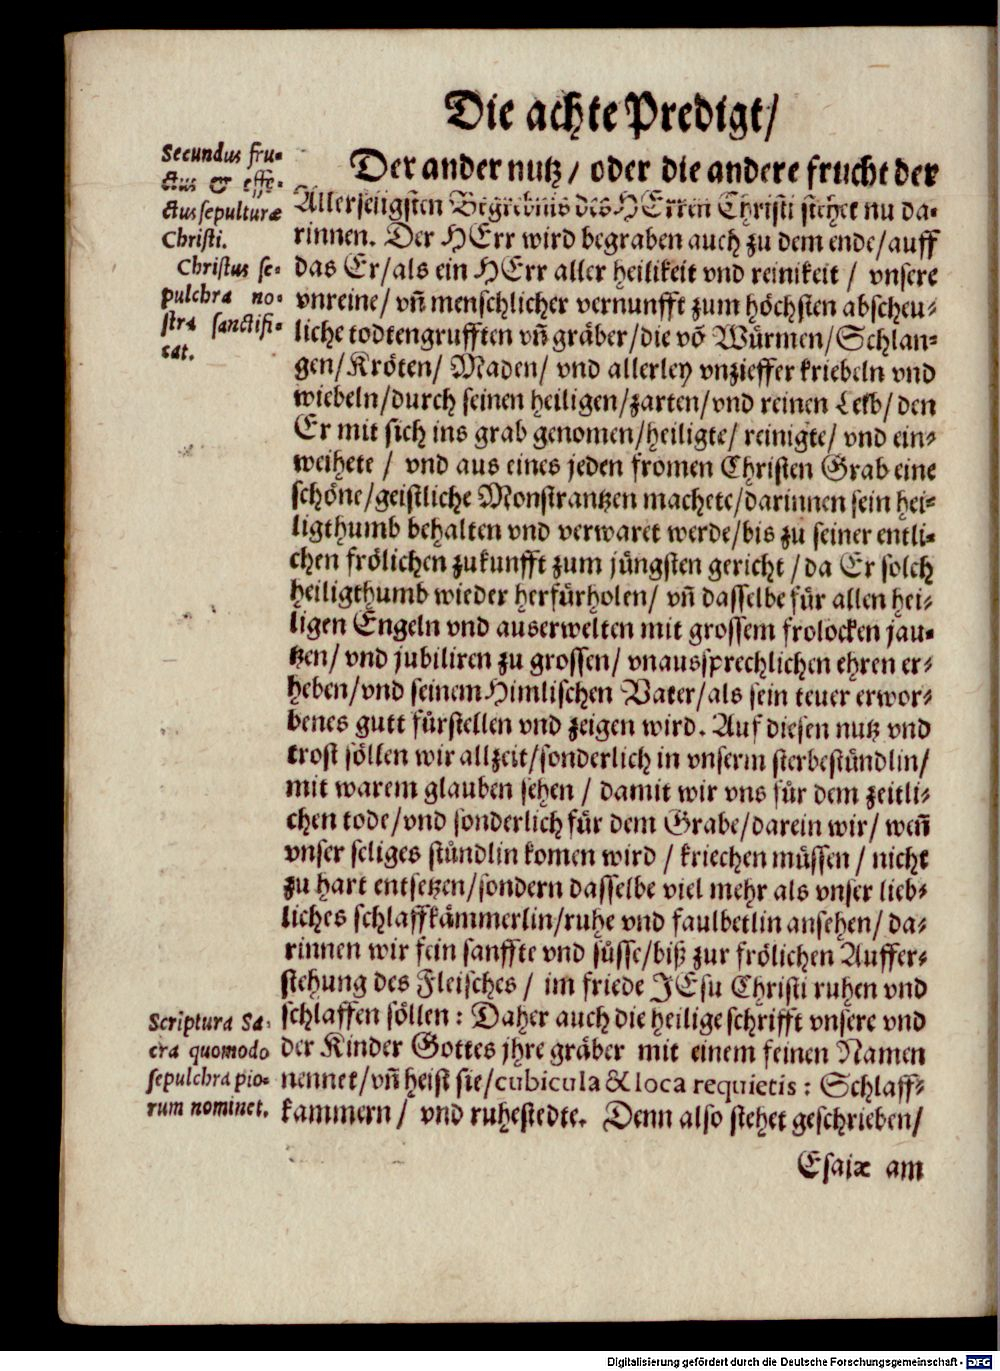 Die achte Predigt/
Secundus fru-
ctus & effe-
ctus sepulturæ
Christi.
Christus se-
pulchra no-
stra sanctifi-
cat.
Der ander nutz/ oder die andere frucht der
Allerseligsten Begrebnis des HErren Christi stehet nu da-
rinnen. Der HErr wird begraben auch zu dem ende/auff
das Er/als ein HErr aller heilikeit vnd reinikeit / vnsere
vnreine/ vñ menschlicher vernunfft zum höchsten abscheu-
liche todtengrufften vñ gräber/die võ Würmen/Schlan-
gen/Kröten/ Maden/ vnd allerley vnzieffer kriebeln vnd
wiebeln/durch seinen heiligen/zarten/vnd reinen Leib/ den
Er mit sich ins grab genomen/heiligte/ reinigte/ vnd ein-
weihete / vnd aus eines jeden fromen Christen Grab eine
schöne/geistliche Monstrantzen machete/darinnen sein hei-
ligthumb behalten vnd verwaret werde/bis zu seiner entli-
chen frölichen zukunfft zum jüngsten gericht /da Er solch
heiligthumb wieder herfürholen/ vñ dasselbe für allen hei-
ligen Engeln vnd auserwelten mit grossem frolocken jau-
tzen/ vnd jubiliren zu grossen/ vnaussprechlichen ehren er-
heben/vnd seinem Himlischen Vater/als sein teuer erwor-
benes gutt fürstellen vnd zeigen wird. Auf diesen nutz vnd
trost söllen wir allzeit/sonderlich in vnserm sterbestündlin/
mit warem glauben sehen / damit wir vns für dem zeitli-
chen tode/vnd sonderlich für dem Grabe/darein wir/ weñ
vnser seliges stündlin komen wird / kriechen müssen / nicht
zu hart entsetzen/sondern dasselbe viel mehr als vnser lieb-
liches schlaffkämmerlin/ruhe vnd faulbetlin ansehen/ da-
rinnen wir fein sanffte vnd süsse/biß zur frölichen Auffer-
stehung des Fleisches / im friede JEsu Christi ruhen vnd
schlaffen söllen : Daher auch die heilige schrifft vnsere vnd
der Kinder Gottes jhre gräber mit einem feinen Namen
nennet/vñ heist sie/cubicula & loca requietis : Schlaff-
kammern / vnd ruhestedte. Denn also stehet geschrieben/
Scriptura Sa-
cra quomodo
sepulchra pio-
rum nominet.
Esajæ am
Digitalisierung gefördert durch die Deutsche Forschungsgemeinschaft - DFG